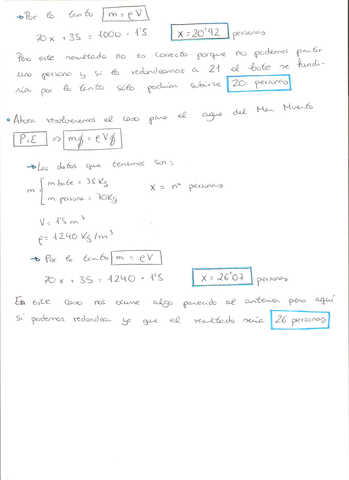 → Por lo tanto m = ρV
70x + 35 = 1000 · 1'5 x = 20'92 personas
Pero este resultado no es correcto porque no podemos partir
una persona y si lo redondeamos a 21 el bote se fundi-
ría por lo tanto sólo podrían subirse 20 personas
• Ahora resolveremos el caso para el agua del Mar Muerto
P=E ⇒ mg = ρVg
→ Los datos que tenemos son:
m { m bote = 35 Kg
m persona = 70Kg x = nº personas
V = 1'5 m³
ρ = 1240 Kg/m³
→ Por lo tanto m = ρV
70x + 35 = 1240 · 1'5 x = 26'07 personas
En este caso nos ocurre algo parecido al anterior pero aquí
sí podemos redondear ya que el resultado sería 26 personas